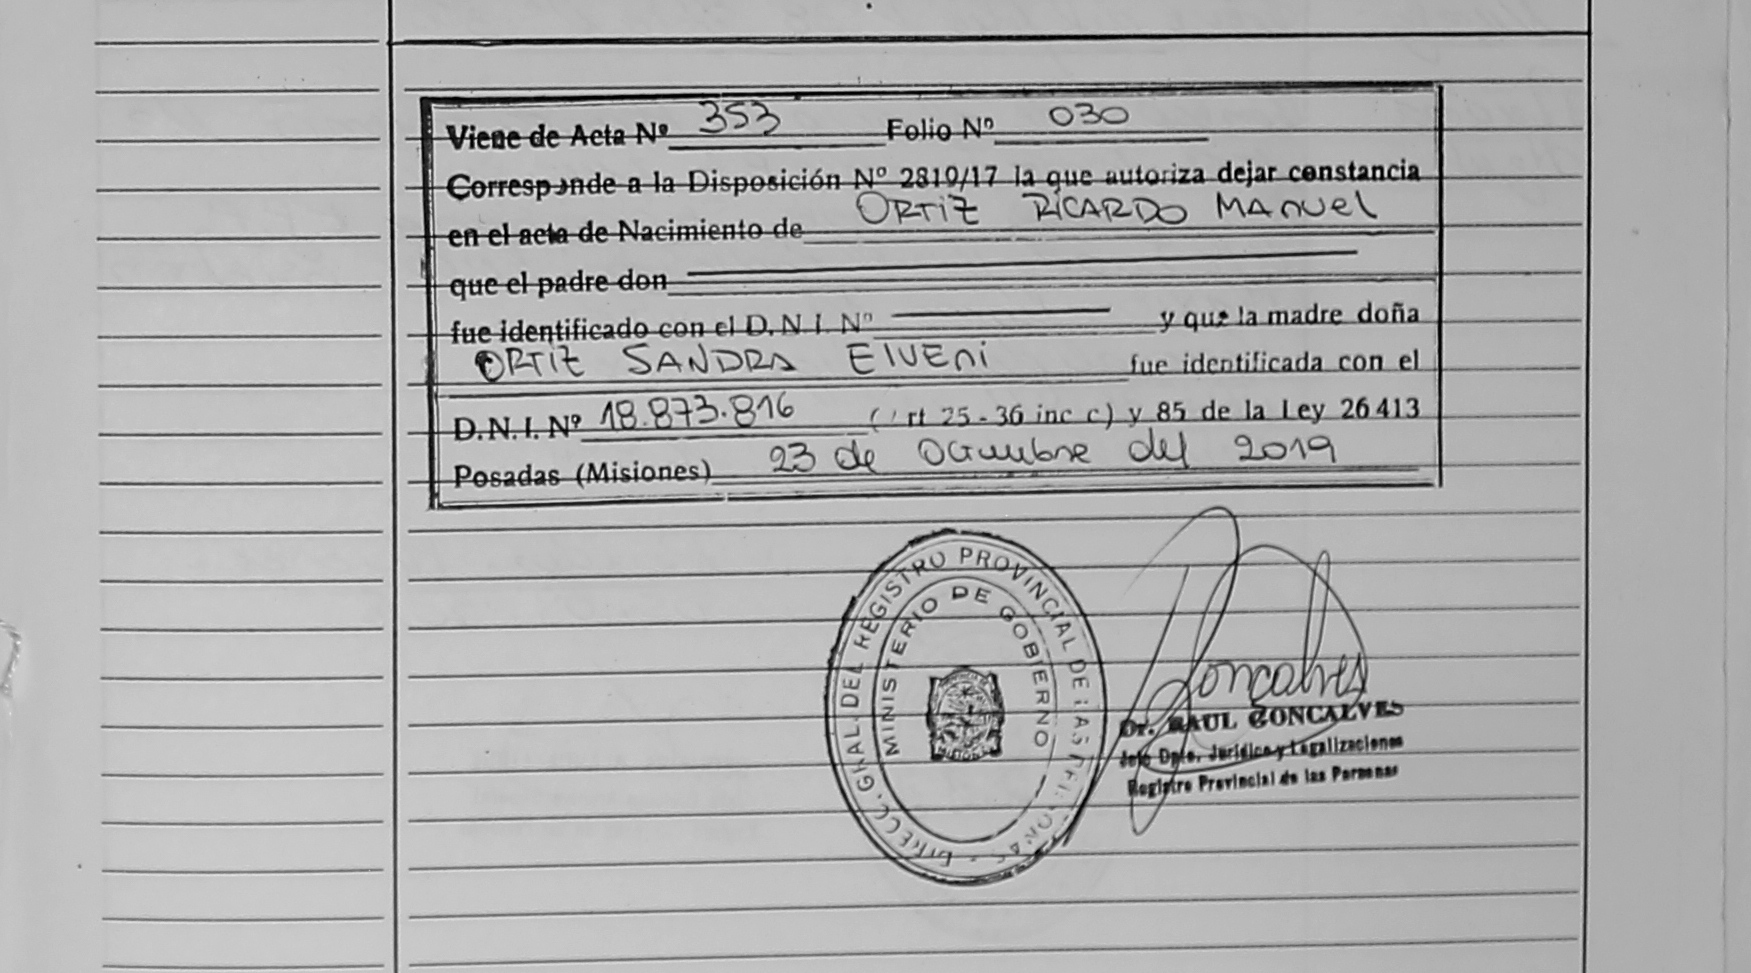 Viene de Acta Nº 353 Folio Nº 030
Corresponde a la Disposición Nº 2810/17 la que autoriza dejar constancia
en el acta de Nacimiento de ORTIZ RICARDO MANUEL
que el padre don
fue identificado con el D. N. I. Nº y que la madre doña
ORTIZ SANDRA ElVENi fue identificada con el
D. N. I. Nº 18.873.816 ( rt 25 - 36 inc c) y 85 de la Ley 26413
Posadas (Misiones) 23 de Octubre del 2019
DIRECC. GRAL. DEL REGISTRO PROVINCIAL DE LAS PERSONAS
MINISTERIO DE GOBIERNO
Goncalves
Dr. RAUL GONCALVES
Jefe Dpto. Jurídico y Legalizaciones
Registro Provincial de las Personas